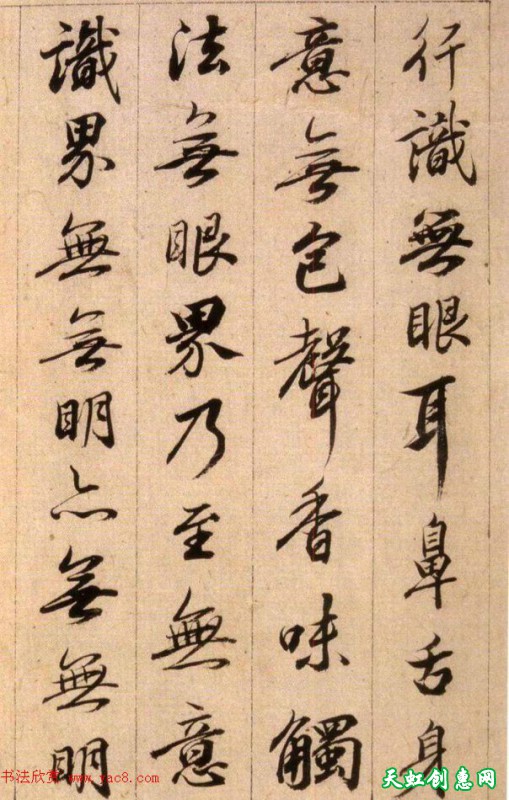 行識無眼耳鼻舌身
意無色聲香味觸
法無眼界乃至無意
識界無無明亦無無明
书法欣赏 www.yac8.com
天虹创惠网